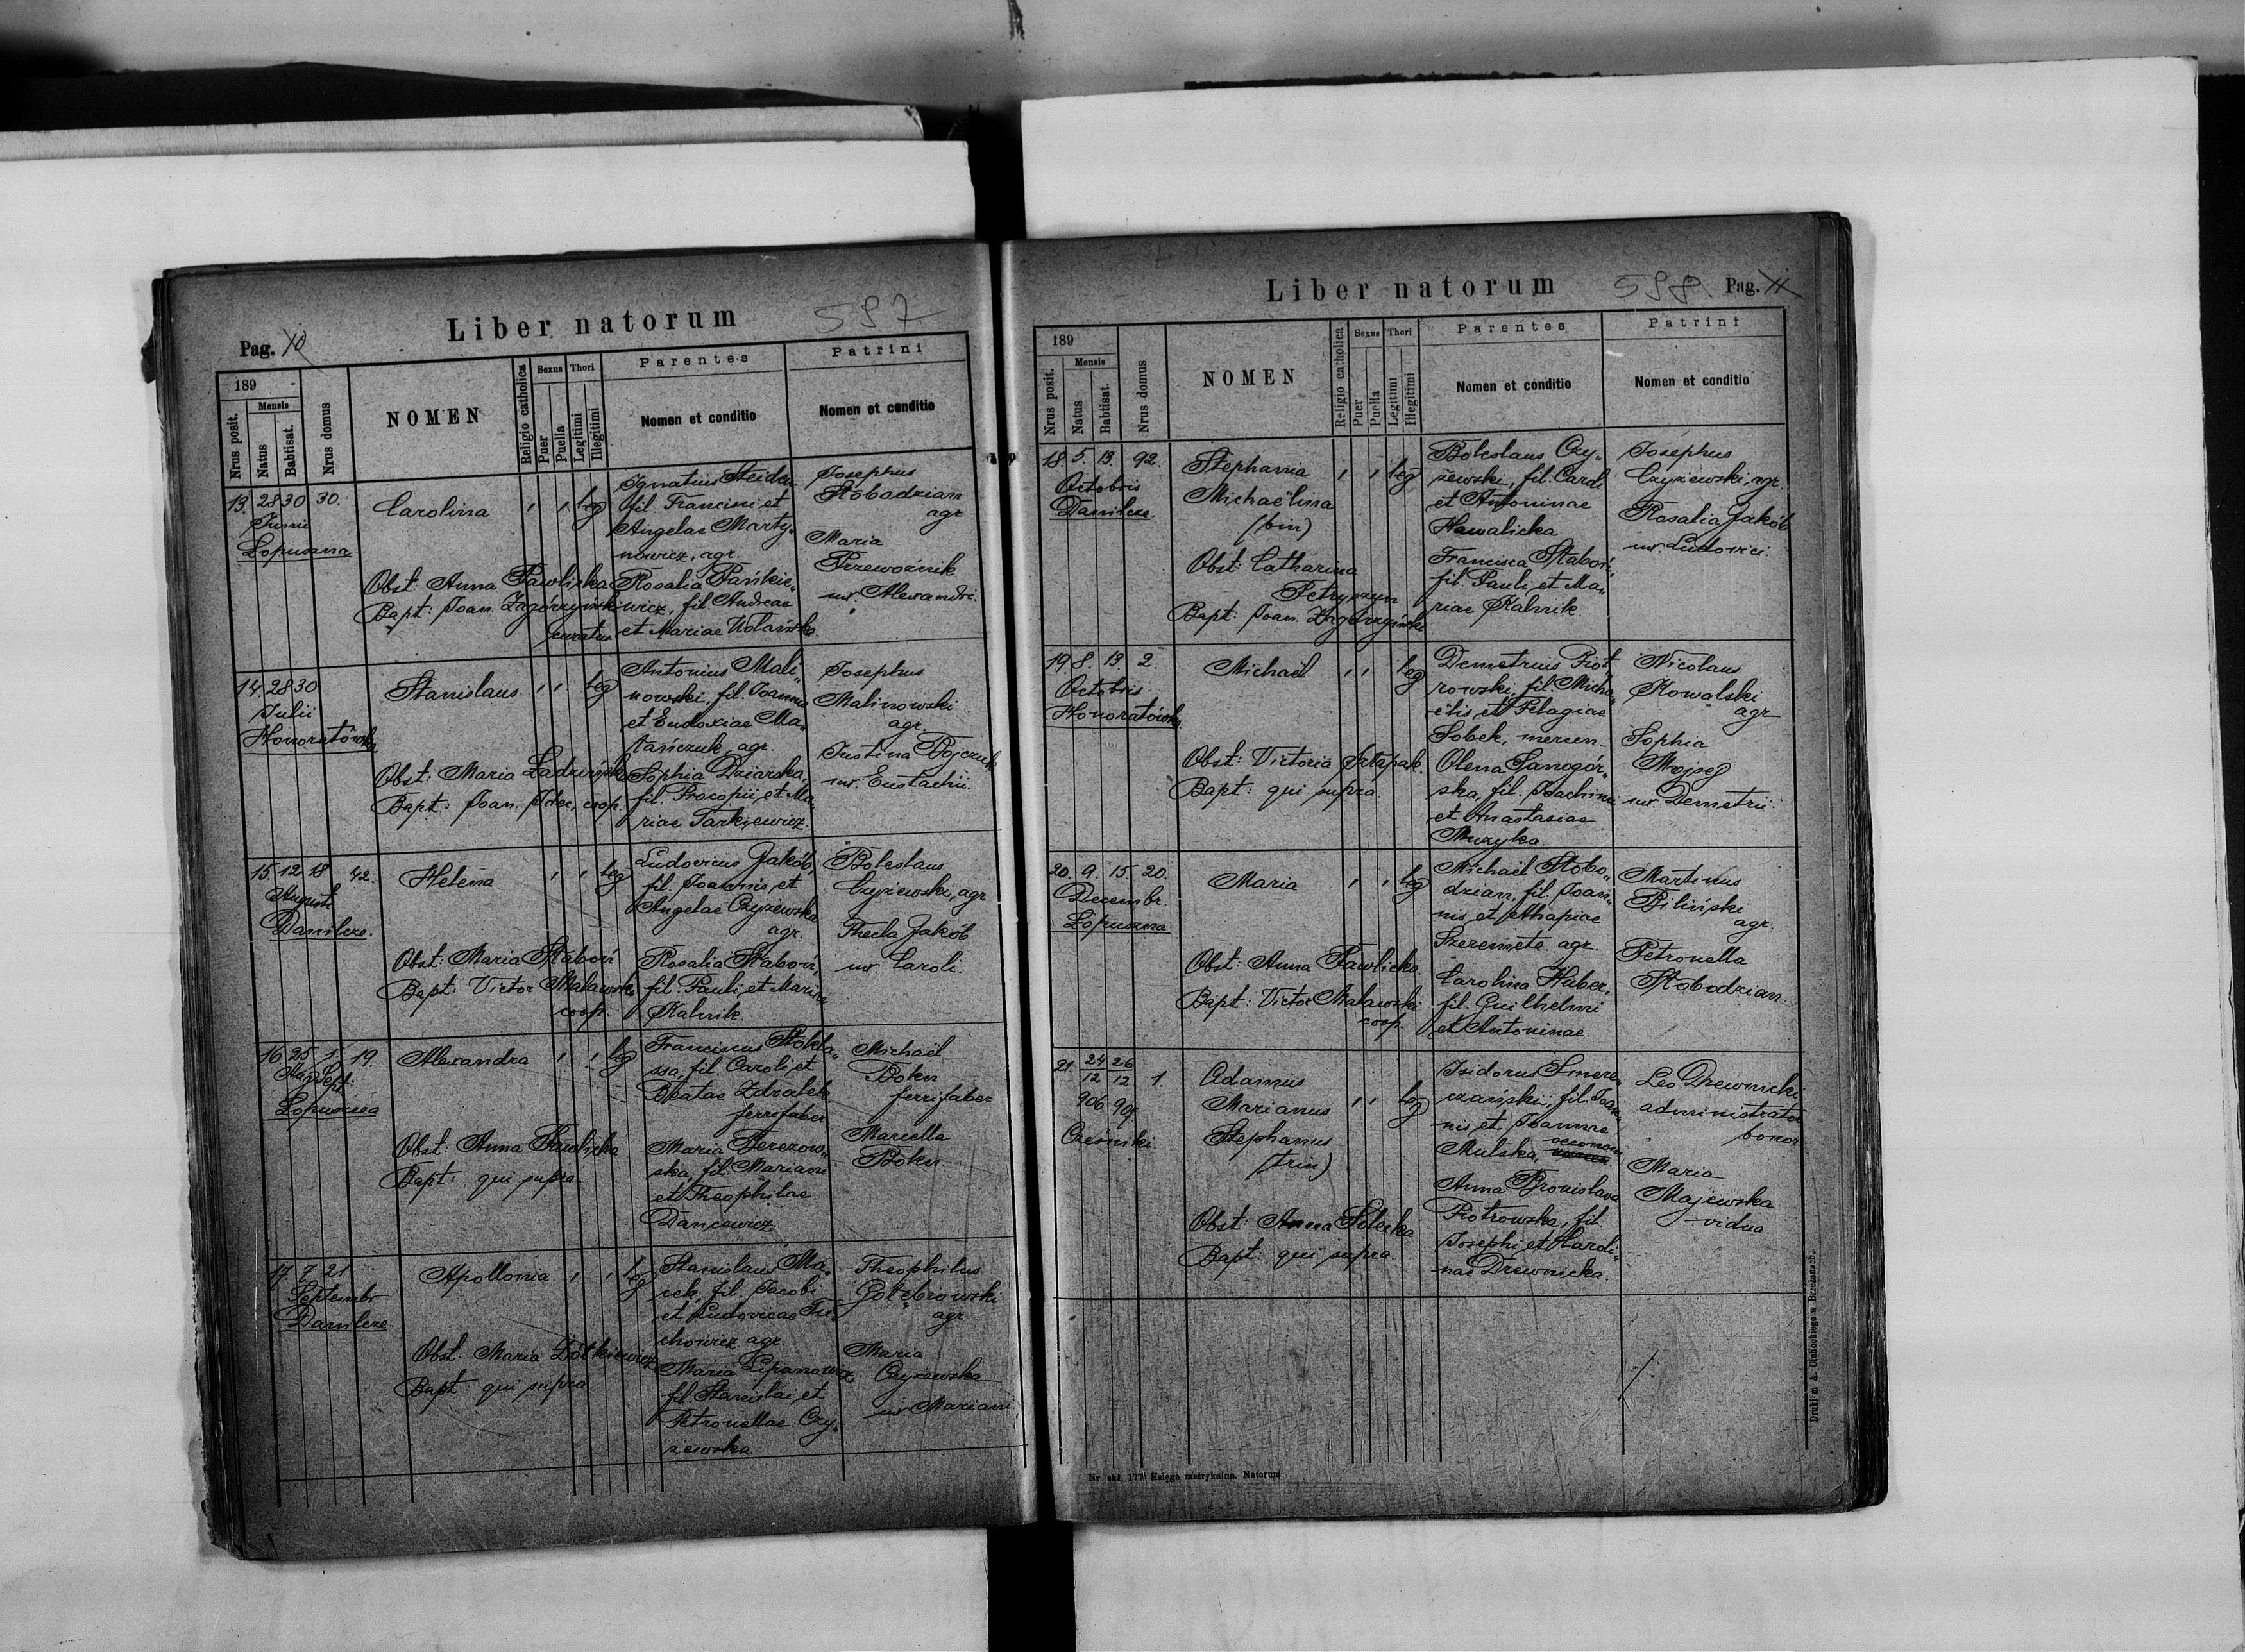 Pag. 10
Liber natorum
597
189
Mensis
Nrus posit.
Natus
Babtisat.
Nrus domus
NOMEN
Religio catholica
Sexus
Puer
Puella
Thori
Legitimi
Illegitimi
Parentes
Nomen et conditio
Patrini
Nomen et conditio
13. 28 30 30.
Junii
Łopuszna
Carolina
leg
Obst: Anna Pawlicka
Bapt: Joan. Zagórzyński
curatus
fil. Francisci et
Angelae Marty„
nowicz, agr.
Rosalia Pańkie„
wicz, fil. Andreae
et Mariae Wolańska
Josephus
Słobodzian
agr
Maria
Przewoźnik
ux. Alexandri.
14. 28 30
Julii
Honoratówka
Stanislaus
leg
Obst: Maria Ładzińska
Bapt: Joan. Idec, coop.
Antonius Mali„
nowski, fil. Joannis
et Eudoxiae Ma„
tańczuk, agr.
Sophia Dziarska,
fil. Procopii et Ma„
riae Tarkiewicz.
Josephus
Malinowski
agr.
Justina Bojczuk
ux. Eustachii.
15. 12 18 42.
Augusti
Danilcze.
Helena
leg
Obst: Maria Słaboń
Bapt: Victor Malawski
coop.
Ludovicus Jakób,
fil. Joannis et
Angelae Czyżewska
agr.
Rosalia Słaboń,
fil. Pauli et Mariae
Kalnik.
Boleslaus
Czyżewski, agr
Thecla Jakób
ux. Caroli.
16 25 1 19.
Aug Sept.
Łopuszna
Alexandra
leg
Obst: Anna Pawlicka
Bapt: qui supra.
Franciscus Stokła„
ssa, fil. Caroli et
Beatae Zdrałek
ferrifaber
Maria Berezow„
ska, fil. Mariani
et Theophilae
Dancewicz
Michaël
Boku
ferrifaber
Marcella
Boku
17. 7. 21
Septembr
Danilcze
Apollonia
leg
Obst: Maria Żółkiewicz
Bapt: qui supra
Stanislaus Ma„
ciek, fil. Jacobi
et Ludovicae Tu„
chowicz agr.
Maria Lipanowicz
fil Stanislai et
Petronellae Czy„
żewska.
Theophilus
Gołębrowski
agr
Maria
Czyżewska
ux Mariani.
Liber natorum
598.
Pag. 11
189
Mensis
Nrus posit.
Natus
Babtisat.
Nrus domus
NOMEN
Religio catholica
Sexus
Puer
Puella
Thori
Legitimi
Illegitimi
Parentes
Nomen et conditio
Patrini
Nomen et conditio
18. 5. 13. 92.
Octobris
Danilcze.
Stephania
Michaëlina
(bin)
leg
Obst: Catharina
Petryszyn
Bapt: Joan. Zagórzyński
Boleslaus Czy„
żewski, fil. Caroli
et Antoninae
Hawalicka
Francisca Słaboń,
fil. Pauli et Ma„
riae Kalnik.
Josephus
Czyżewski, agr.
Rosalia Jakób
ux. Ludovici.
19. 8. 13. 2.
Octobris
Honoratówka
Michaël
leg
Obst: Victoria Sztapak.
Bapt: qui supra.
Demetrius Piot
rowski, fil. Micha„
ëlis et Pelagiae
Sobek, mercen.
Olena Sanogór„
ska, fil. Joachimi
et Anastasiae
Muzyka.
Nicolaus
Kowalski
agr
Sophia
Mojsej
ux. Demetrii.
20. 9. 15. 20.
Decembr.
Łopuszna
Maria
leg
Obst: Anna Pawlicka.
Bapt: Victor Malawski
coop.
Michaël Słobo„
dzian, fil. Joan„
nis et Ahapiae
Szeremeta agr.
Carolina Huber,
fil. Guilhelmi
et Antoninae.
Martinus
Biliński
agr.
Petronella
Słobodzian.
21. 24/12 26/12 1.
906 907
Cześniki.
Adamus
Marianus
Stephanus
(trin)
leg
Obst: Anna Solecka
Bapt: qui supra.
Isidorus Smere„
czański, fil. Joan„
nis et Joannae
Mulska, oeconom
Anna Bronislava
Piotrowska, fil.
Josephi et Karoli„
nae Drewnicka.
Leo Drewnicki
administrator
bonor
Maria
Majewska
vidua
Nr. skł. 177 Księga metrykalna. Natorum
Drukiem A. Cichockiego w Brzeżanach.